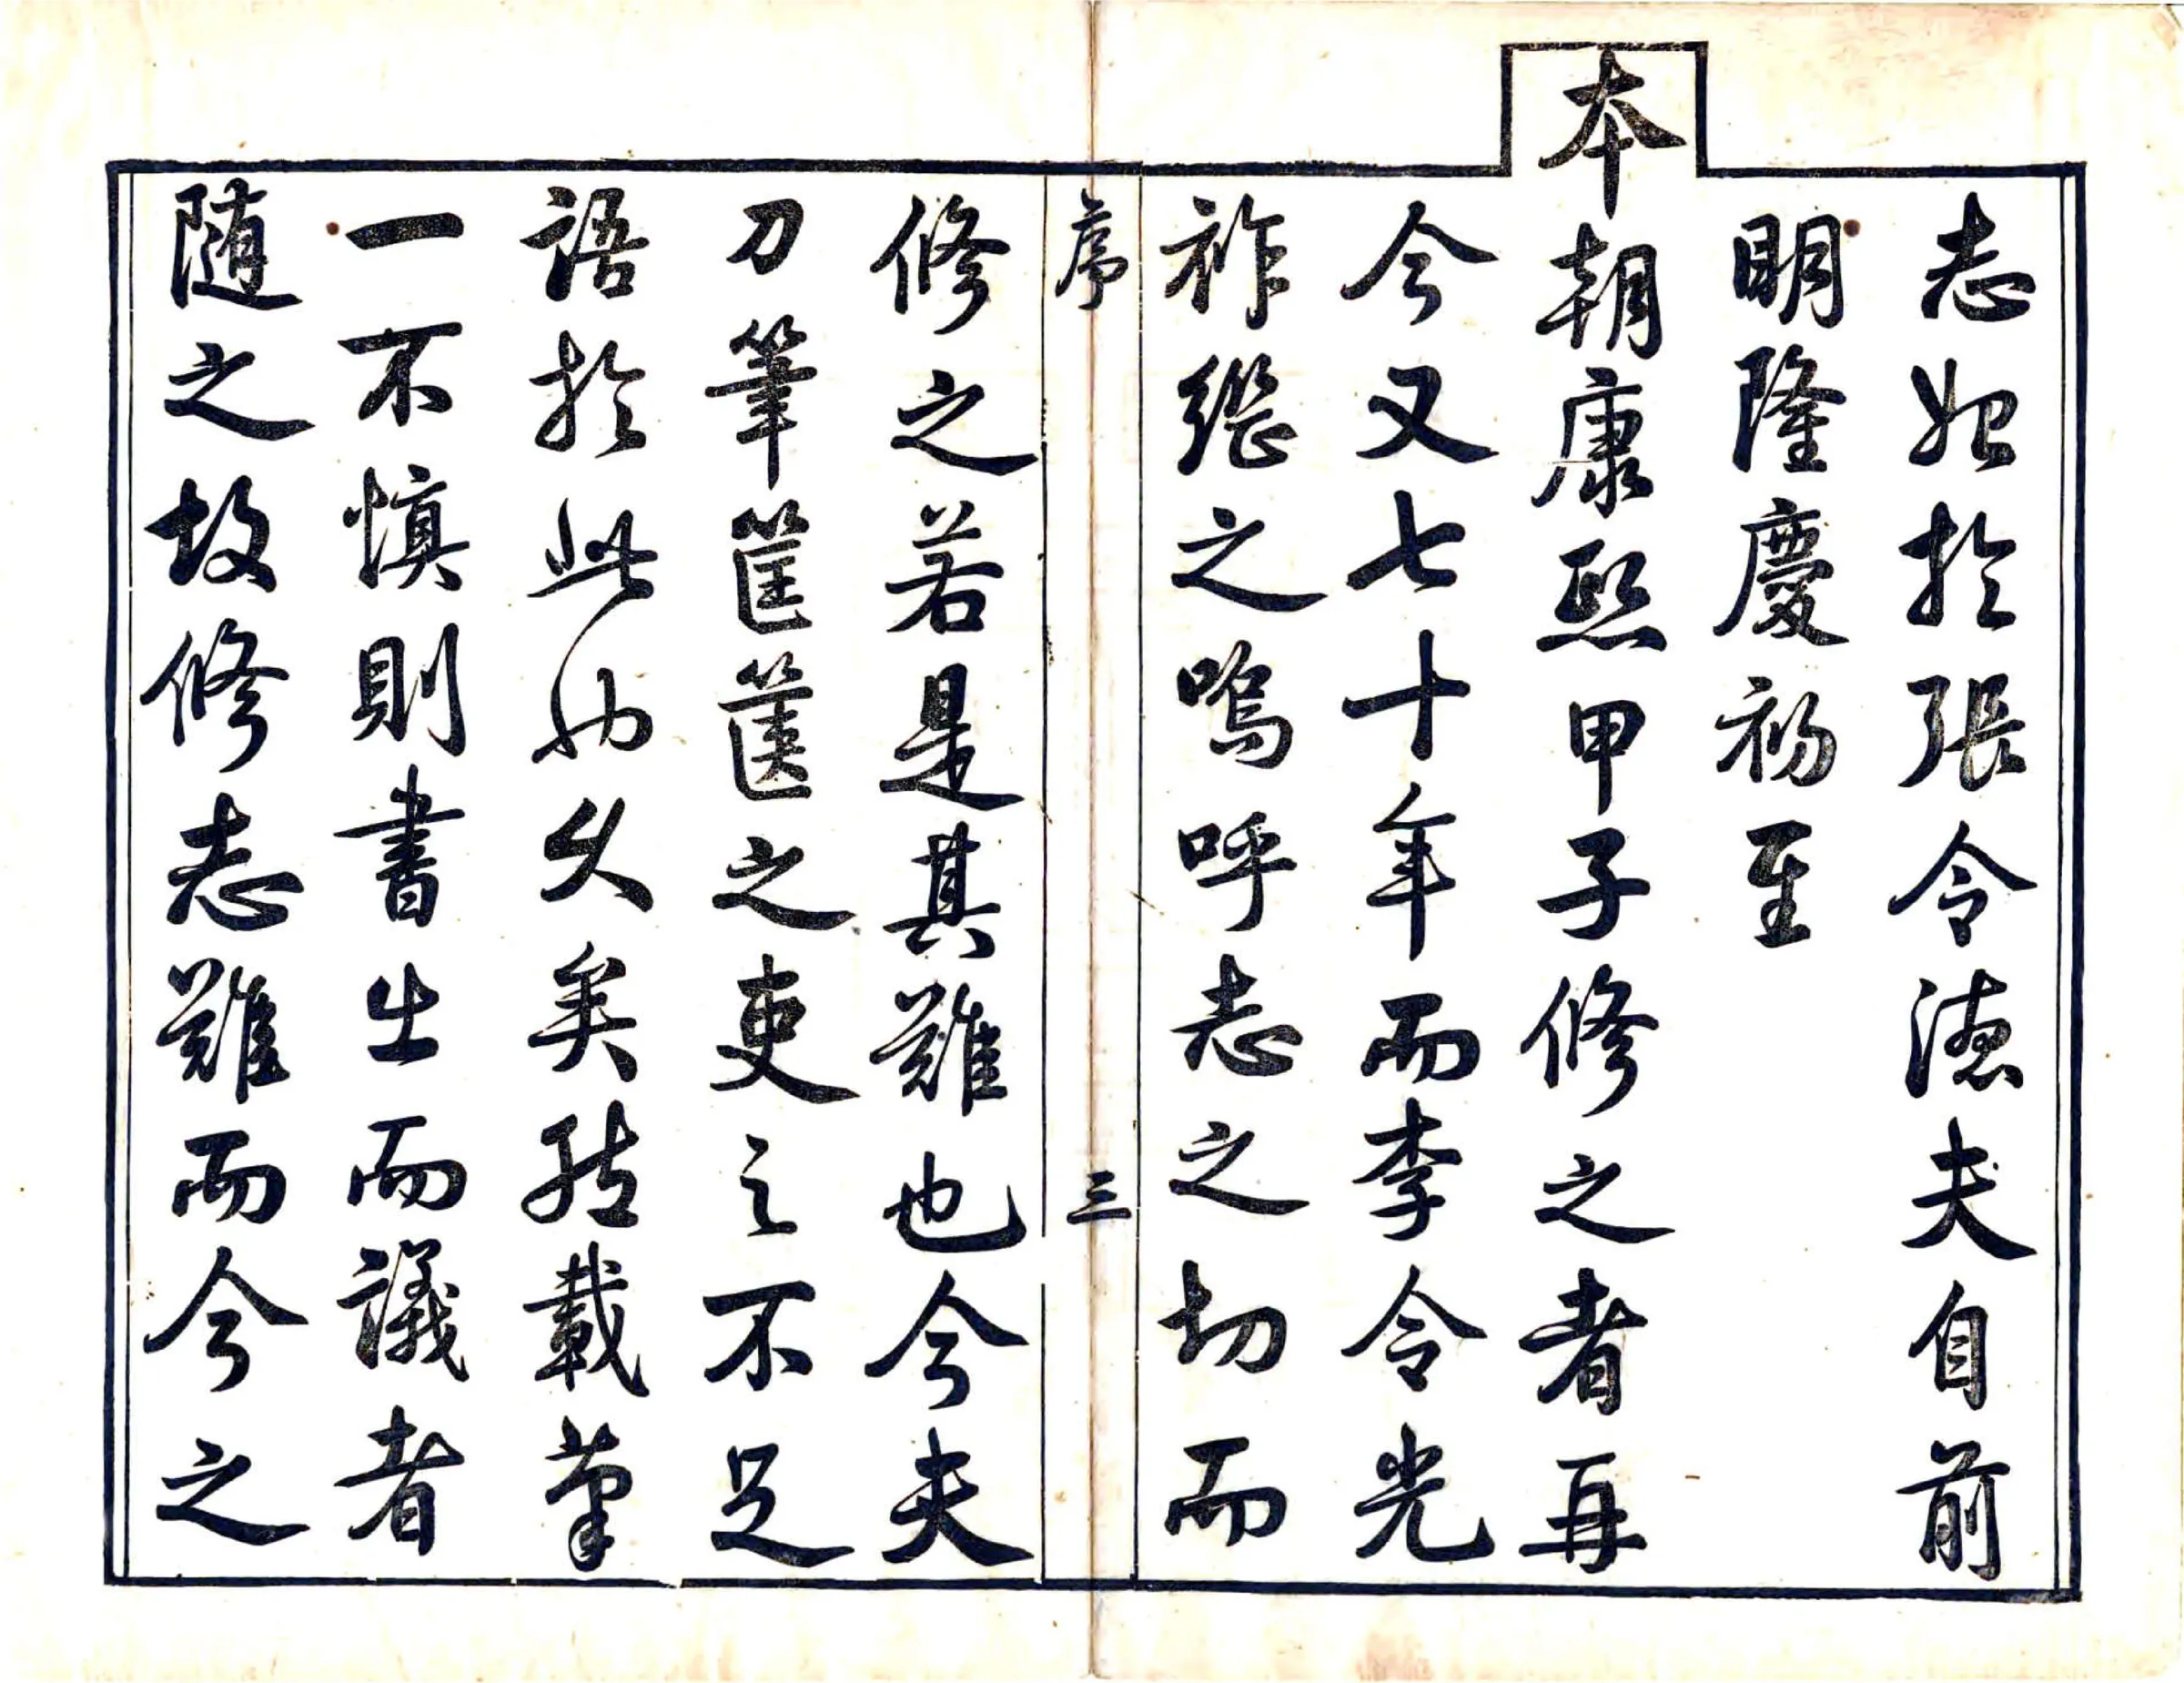 志始於張令德夫自前
明隆慶初至
本朝康熙甲子修之者再
今又七十年而李令光
祚繼之嗚呼志之切而
序 三
修之若是其難也今夫
刀筆筐篋之吏之不足
語於此也久矣然載筆
一不慎則書出而議者
随之故修志難而今之